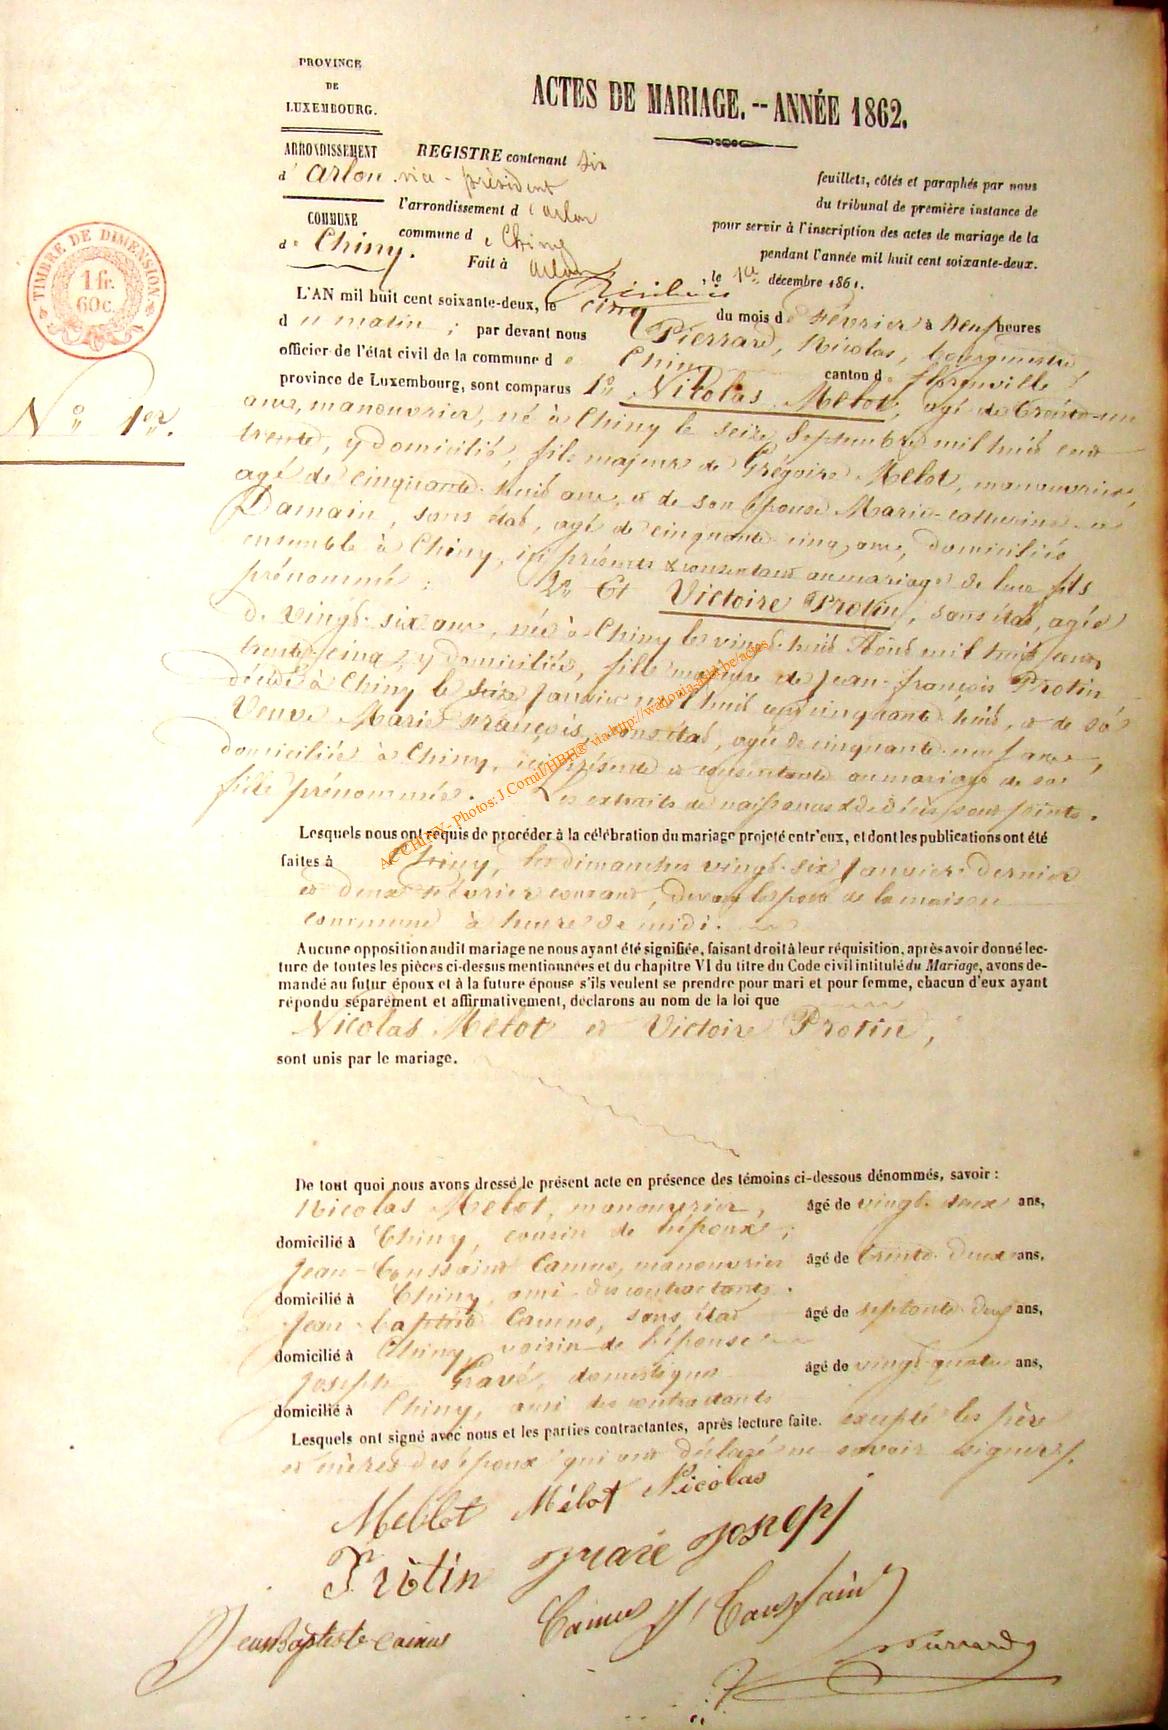 PROVINCE
DE
LUXEMBOURG.
ACTES DE MARIAGE. -- ANNÉE 1862.
ARRONDISSEMENT
d'Arlon
COMMUNE
de Chiny.
REGISTRE contenant six feuillets, côtés et paraphés par nous
vice-président du tribunal de première instance de
l'arrondissement d'Arlon pour servir à l'inscription des actes de mariage de la
commune de Chiny pendant l'année mil huit cent soixante-deux.
Fait à Arlon, le 1er décembre 1861.
TIMBRE DE DIMENSION
1 fr.
60 c.
No 1er.
L'AN mil huit cent soixante-deux, le cinq du mois de Février à neuf heures
du matin ; par devant nous Pierrard, Nicolas, bourgmestre
officier de l'état civil de la commune de Chiny canton de Florenville
province de Luxembourg, sont comparus 1o Nicolas Melot, agé de trente-un
ans, manouvrier, né à Chiny le seize Septembre mil huit cent
trente, y domicilié, fils majeur de Grégoire Mellot, manouvrier,
agé de cinquante-huit ans, et de son épouse Marie-Catherine
Damain, sans état, agé de cinquante-cinq ans, domiciliés
ensemble à Chiny, ici présents & consentant au mariage de leur fils
prénommé ; 2o Et Victoire Protin, sans état, agée
de vingt-six ans, née à Chiny le vingt-huit Août mil huit cent
trente-cinq, y domiciliée, fille majeure de Jean-François Protin
décédé à Chiny le seize Janvier mil huit cent cinquante-huit, et de sa
Veuve Marie François, sans état, agée de cinquante-neuf ans,
domiciliée à Chiny, ici présente et consentante au mariage de sa
fille prénommée. Les extraits de naissances & de décès sont joints.
Lesquels nous ont requis de procéder à la célébration du mariage projeté entr'eux, et dont les publications ont été
faites à Chiny, les dimanches vingt-six Janvier dernier
et deux Février courant, devant la porte de la maison
commune à heure de midi.
Aucune opposition audit mariage ne nous ayant été signifiée, faisant droit à leur réquisition, après avoir donné lec-
ture de toutes les pièces ci-dessus mentionnées et du chapitre VI du titre du Code civil intitulé du Mariage, avons de-
mandé au futur époux et à la future épouse s'ils veulent se prendre pour mari et pour femme, chacun d'eux ayant
répondu séparément et affirmativement, déclarons au nom de la loi que
Nicolas Melot et Victoire Protin,
sont unis par le mariage.
De tout quoi nous avons dressé le présent acte en présence des témoins ci-dessous dénommés, savoir :
Nicolas Melot, manouvrier, âgé de vingt-deux ans,
domicilié à Chiny, cousin de l'époux ;
Jean-Toussaint Camus, manouvrier âgé de trente-deux ans,
domicilié à Chiny, ami des contractants.
Jean-baptiste Camus, sans état âgé de septante-deux ans,
domicilié à Chiny, voisin de l'épouse
Joseph Gravé, domestique âgé de vingt-quatre ans,
domicilié à Chiny, ami des contractants
Lesquels ont signé avec nous et les parties contractantes, après lecture faite. excepté les père
et mères des époux qui ont déclaré ne savoir signer.
Mellot Mélot Nicolas
Protin Joseph
Jean Baptiste Camus Camus J Toussaint
Pierrard
ACCHINX- Photos: J.Cornil/HBH© via http://wallonia-asbl.be/actes